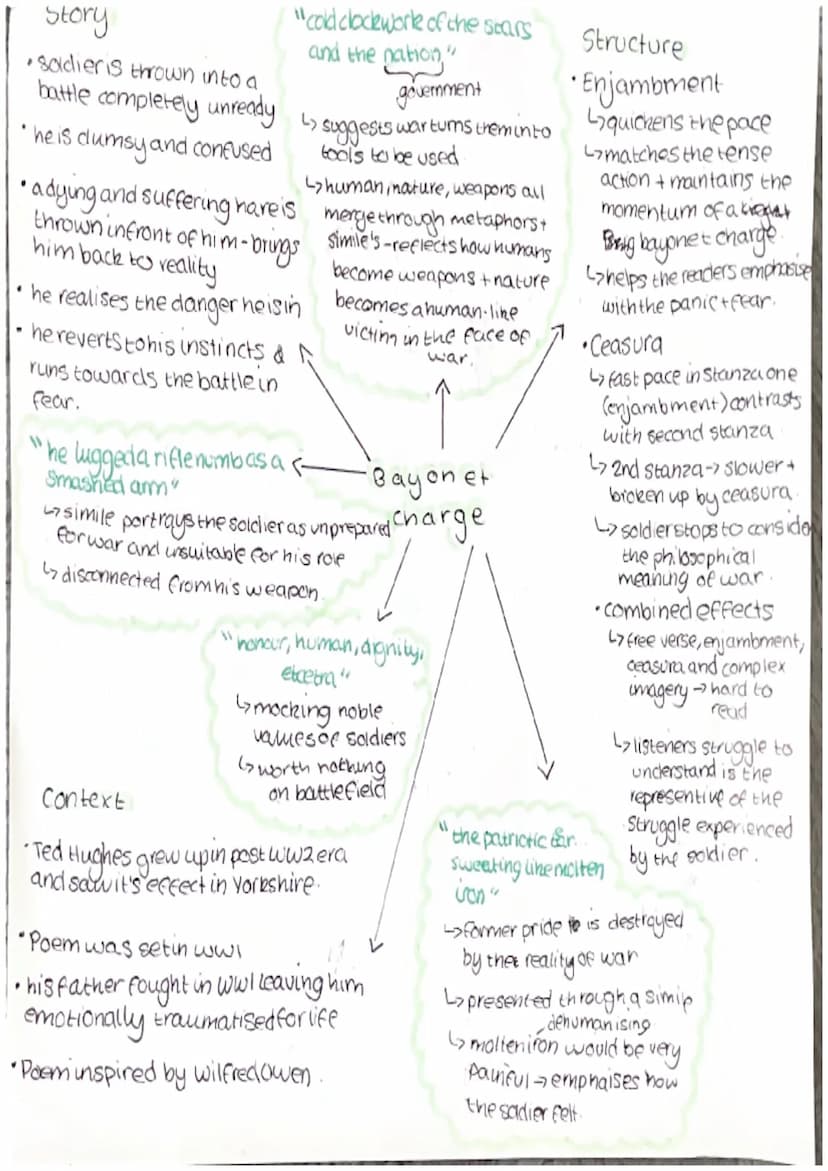 Story
• soldier is thrown into a
battle completely unready
• he is clumsy and confused
• a dying and suffering hare is
thrown infront of him - brings
him back to reality
• he realises the danger he is in
• he reverts to his instincts &
runs towards the battle in
fear.
"cold clockwork of the stars
and the nation"
government
↳ suggests war turns them into
tools to be used
↳ human, nature, weapons all
merge through metaphors +
simile's - reflects how humans
become weapons + nature
becomes a human-like
victim in the face of
war.
Structure
• Enjambment
↳ quickens the pace
↳ matches the tense
action + maintains the
momentum of a
bayonet charge.
↳ helps the readers emphasise
with the panic + fear.
• Ceasura
↳ fast pace in stanza one
(enjambment) contrasts
with second stanza
↳ 2nd stanza → slower +
broken up by ceasura.
↳ soldier stops to conside
the philosophical
meaning of war.
• combined effects
↳ free verse, enjambment,
ceasura and complex
imagery → hard to
read
↳ listeners struggle to
understand is the
representive of the
struggle experienced
by the soldier.
Bayonet
charge
"he lugged a rifle numb as a
smashed arm"
↳ simile portrays the soldier as unprepared
for war and unsuitable for his role
↳ disconnected from his weapon.
"honour, human, dignity,
etcetra"
↳ mocking noble
values of soldiers
↳ worth nothing
on battlefield
Context
• Ted Hughes grew up in post WW2 era
and saw it's effect in Yorkshire.
• Poem was set in WW1
• his father fought in WW1 leaving him
emotionally traumatised for life
• Poem inspired by Wilfred Owen.
"the patriotic
sweating like molten
iron"
↳ former pride is destroyed
by the reality of war
↳ presented through a
dehumanising
↳ molten iron would be very
painful → emphaises how
the soldier felt.